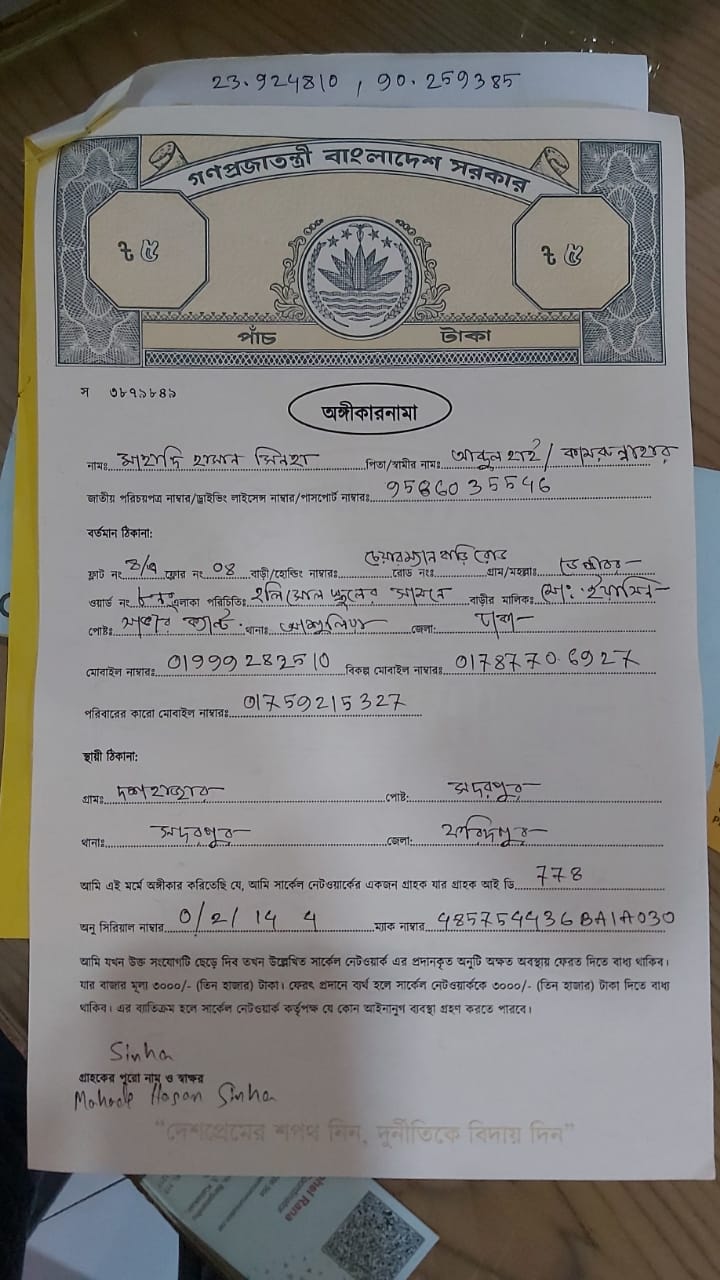 23.924810 , 90.259385
গণপ্রজাতন্ত্রী বাংলাদেশ সরকার
৳ ৫ ৳ ৫
পাঁচ টাকা
স ৩৮৭৯৮৪৯
অঙ্গীকারনামা
নামঃ মাহাদি হাসান সিনহা পিতা/স্বামীর নামঃ আব্দুল হাই / কামরুন্নাহার
জাতীয় পরিচয়পত্র নাম্বার/ড্রাইভিং লাইসেন্স নাম্বার/পাসপোর্ট নাম্বারঃ 9586035546
বর্তমান ঠিকানা:
ফ্লাট নং ফ্লোর নং 08 বাড়ী/হোল্ডিং নাম্বারঃ চেয়ারম্যান বাড়ি রোড রোড নংঃ গ্রাম/মহল্লাঃ
ওয়ার্ড নং এলাকা পরিচিতিঃ স্কুলের সামনে বাড়ীর মালিকঃ মো: ইয়াসিন
পোষ্টঃ সাভার ক্যান্ট. থানাঃ আশুলিয়া জেলা: ঢাকা
মোবাইল নাম্বারঃ 01999282510 বিকল্প মোবাইল নাম্বারঃ 01787706927
পরিবারের কারো মোবাইল নাম্বারঃ 01759215327
স্থায়ী ঠিকানা:
গ্রামঃ দশহাজার পোষ্ট: সদরপুর
থানাঃ সদরপুর জেলা: ফরিদপুর
আমি এই মর্মে অঙ্গীকার করিতেছি যে, আমি সার্কেল নেটওয়ার্কের একজন গ্রাহক যার গ্রাহক আই ডি 778
অনু সিরিয়াল নাম্বার 0/2/14 4 ম্যাক নাম্বার 485754436BA1A030
আমি যখন উক্ত সংযোগটি ছেড়ে দিব তখন উল্লেখিত সার্কেল নেটওয়ার্ক এর প্রদানকৃত অনুটি অক্ষত অবস্থায় ফেরত দিতে বাধ্য থাকিব।
যার বাজার মূল্য ৩০০০/- (তিন হাজার) টাকা। ফেরৎ প্রদানে ব্যর্থ হলে সার্কেল নেটওয়ার্ককে ৩০০০/- (তিন হাজার) টাকা দিতে বাধ্য
থাকিব। এর ব্যতিক্রম হলে সার্কেল নেটওয়ার্ক কর্তৃপক্ষ যে কোন আইনানুগ ব্যবস্থা গ্রহণ করতে পারবে।
Sinha
গ্রাহকের পুরো নাম ও স্বাক্ষর
Hasan Sinha
"দেশপ্রেমের শপথ নিন, দুর্নীতিকে বিদায় দিন"
Rana